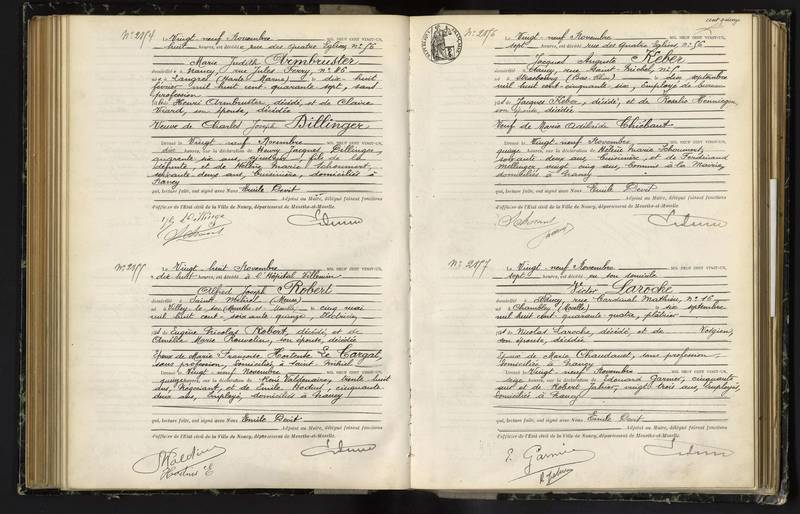 N° 2054
Le Vingt-neuf Novembre MIL NEUF CENT VINGT-UN,
à huit heures, est décédée rue des quatre Eglises, n° 56
Marie Judith Armbruster
domiciliée à Nancy, rue Jules Ferry, n° 86
née à Langres (Haute Marne), le dix-huit
février mil huit cent quarante sept, sans
profession
fille Henri Armbruster, décédé, et de Claire
Viard, son épouse, décédée
Veuve de Charles Joseph Dillinger
Devant le Vingt neuf Novembre MIL NEUF CENT VINGT-UN,
à dix heures, sur la déclaration de Henry Jacques Dillinger
quarante six ans, fils de la
défunte et de Hélène Marie Schonnert,
soixante deux ans, Cuisinière, domiciliés à
Nancy
qui, lecture faite, ont signé avec Nous Emile Devit
Adjoint au Maire, délégué faisant fonctions
d'officier de l'Etat civil de la Ville de Nancy, département de Meurthe-et-Moselle.
N° 2055
Le Vingt huit Novembre MIL NEUF CENT VINGT-UN,
à dix huit heures, est décédé à l'Hôpital Villemin
Alfred Joseph Robert
domicilié à Saint Mihiel (Meuse)
né à Velle-le-sec (Meurthe et Moselle) le cinq mai
mil huit cent soixante quinze, Electricien
fils de Eugène Nicolas Robert, décédé, et de
Amélie Marie Rouvelin, son épouse, décédée
Epoux de Marie Françoise Hortense Le Cargal,
sans profession, domiciliée à Saint Mihiel
Devant le Vingt neuf Novembre MIL NEUF CENT VINGT-UN,
à quinze heures, sur la déclaration de René Valdenaire, trente huit
ans, Négociant, et de Emile Hodnif, cinquante
deux ans, Employé, domiciliés à Nancy
qui, lecture faite, ont signé avec Nous Emile Devit
Adjoint au Maire, délégué faisant fonctions
d'officier de l'Etat civil de la Ville de Nancy, département de Meurthe-et-Moselle.
N° 2056
Le Vingt-neuf Novembre MIL NEUF CENT VINGT-UN,
à sept heures, est décédé rue des quatre Eglises, n° 56
Jacques Auguste Keber
domicilié à Nancy, rue Saint-Michel, n° 5
né à Strasbourg (Bas Rhin) le dix septembre
mil huit cent cinquante six, Employé de bureau
fils de Jacques Keber, décédé, et de Rosalie Hennequin,
son épouse, décédée
Veuf de Marie Adélaïde Thiébaut
Devant le Vingt neuf Novembre MIL NEUF CENT VINGT-UN,
à quinze heures, sur la déclaration de Hélène Marie Schonnert,
soixante deux ans, Cuisinière, et de Ferdinand
Mellinger, vingt cinq ans, Commis à la Mairie,
domiciliés à Nancy
qui, lecture faite, ont signé avec Nous Emile Devit
Adjoint au Maire, délégué faisant fonctions
d'officier de l'Etat civil de la Ville de Nancy, département de Meurthe-et-Moselle.
N° 2057
Le Vingt-neuf Novembre MIL NEUF CENT VINGT-UN,
à sept heures, est décédé en son domicile
Victor Laroche
domicilié à Nancy, rue Cardinal Mathieu, n° 16
né à Chambley (Moselle) le dix septembre
mil huit cent quarante quatre, plâtrier
fils de Nicolas Laroche, décédé, et de Volgien,
son épouse, décédée
Epoux de Marie Chaudavel, sans profession
domiciliée à Nancy
Devant le Vingt neuf Novembre MIL NEUF CENT VINGT-UN,
à seize heures, sur la déclaration de Edouard Garnier, cinquante
neuf et de Robert Jabier, vingt trois ans, Employés,
domiciliés à Nancy
qui, lecture faite, ont signé avec Nous Emile Devit
Adjoint au Maire, délégué faisant fonctions
d'officier de l'Etat civil de la Ville de Nancy, département de Meurthe-et-Moselle.